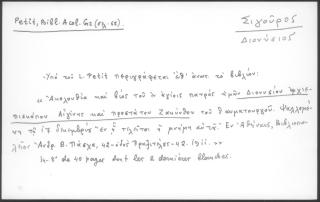 Petit, Bibl. Acol. Gr. (σελ. 55).
Σιγοῦρος
Διονύσιος
Ὑπὸ τοῦ L. Petit περιγράφεται ἐπ' αὐτοῦ τὸ βιβλίον:
« Ἀκολουθία καὶ βίος τοῦ ἐν ἁγίοις πατρὸς ἡμῶν Διονυσίου ἀρχιε-
πισκόπου Αἰγίνης καὶ προστάτου Ζακύνθου τοῦ θαυματουργοῦ. Ψαλλομέ-
νη τῇ 17 δεκεμβρίου ἐν ᾗ τελεῖται ἡ μνήμη αὐτοῦ. Ἐν Ἀθήναις, Βιβλιοπω-
λεῖον Ἀνδρ. Β. Πάσχα, 42-ὁδὸς Πραξιτέλους-42. 1911. »
in-8° de 40 pages dont les 2 dernières blanches.